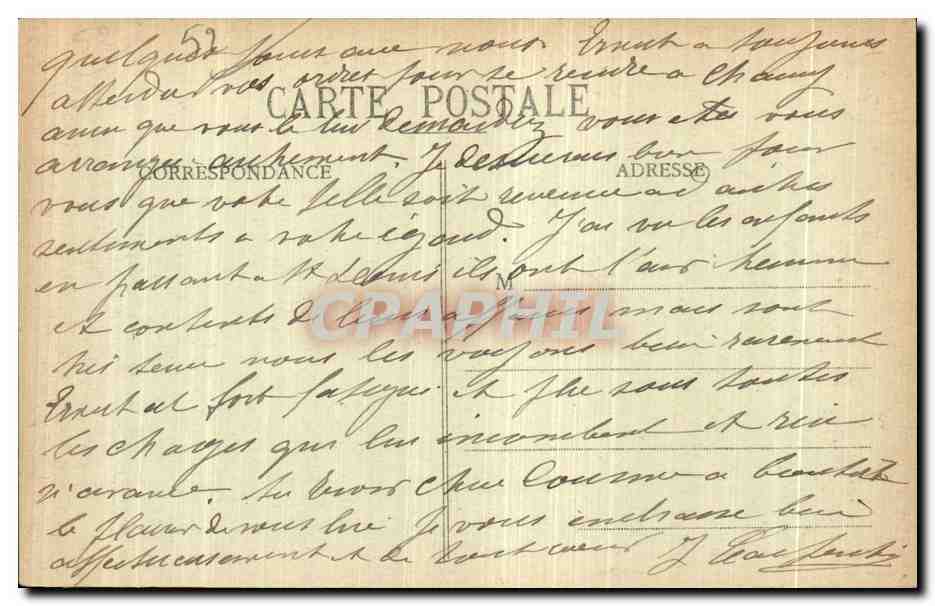 52
quelques jours avec nous. Ernest a toujours
attendu vos ordres pour se rendre a Chauny
CARTE POSTALE
ainsi que vous le lui demandez vous etes vous
arrangés autrement. Je desirerais bien pour
CORRESPONDANCE ADRESSE
vous que votre fille soit revenue a d'autres
sentiments a votre égard. J'ai vu les enfants
en passant a St Denis ils ont l'air heureux
M
et contents de leurs affaires mais sont
CPAPHIL
très tenus nous les voyons bien rarement
Ernest est fort fatigué et plie sous toutes
les charges qui lui incombent et rien
n'avance. Au revoir chere Cousine a bientot
le plaisir de vous lire Je vous embrasse bien
affectueusement et de tout coeur J